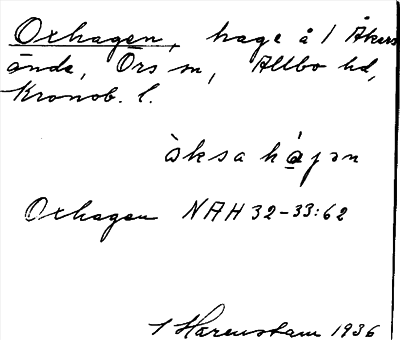 Oxhagen, hage å 1 Åkers
ände, Örs sn, Allbo hd,
Kronob. l.
òksahá̱ɡən
Oxhagen NAH 32-33:62
S Harenstam 1936